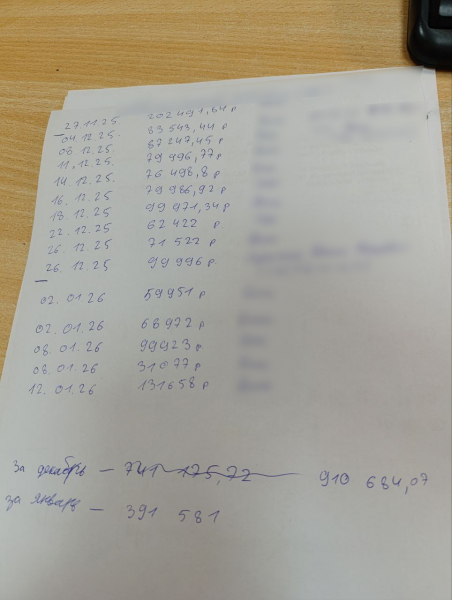 27.11.25 202491,64 р
04.12.25. 83543,44 р
08.12.25. 67247,45 р
11.12.25. 79996,77 р
14.12.25. 76498,8 р
16.12.25. 79986,92 р
19.12.25 99971,34 р
22.12.25 62422 р
26.12.25 71522 р
26.12.25 99996 р
02.01.26 59951 р
02.01.26 68972 р
08.01.26 99923 р
08.01.26 31077 р
12.01.26 131658 р
За декабрь — 741 175,72 910 684,07
за январь — 391 581